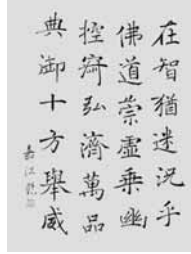 在智猶迷況乎
佛道崇虛乘幽
控寂弘濟萬品
典御十方舉威